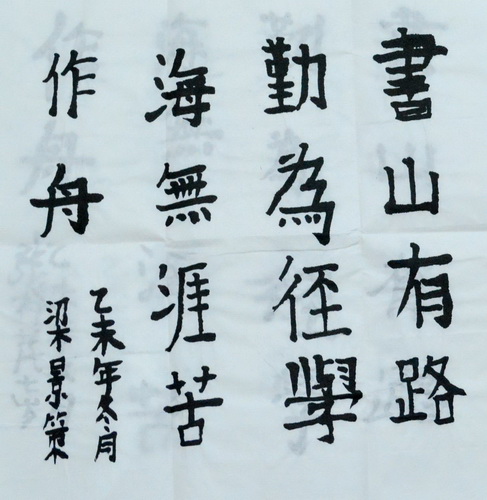 書山有路
勤為径學
海無涯苦
作舟
乙未年冬月
梁景策